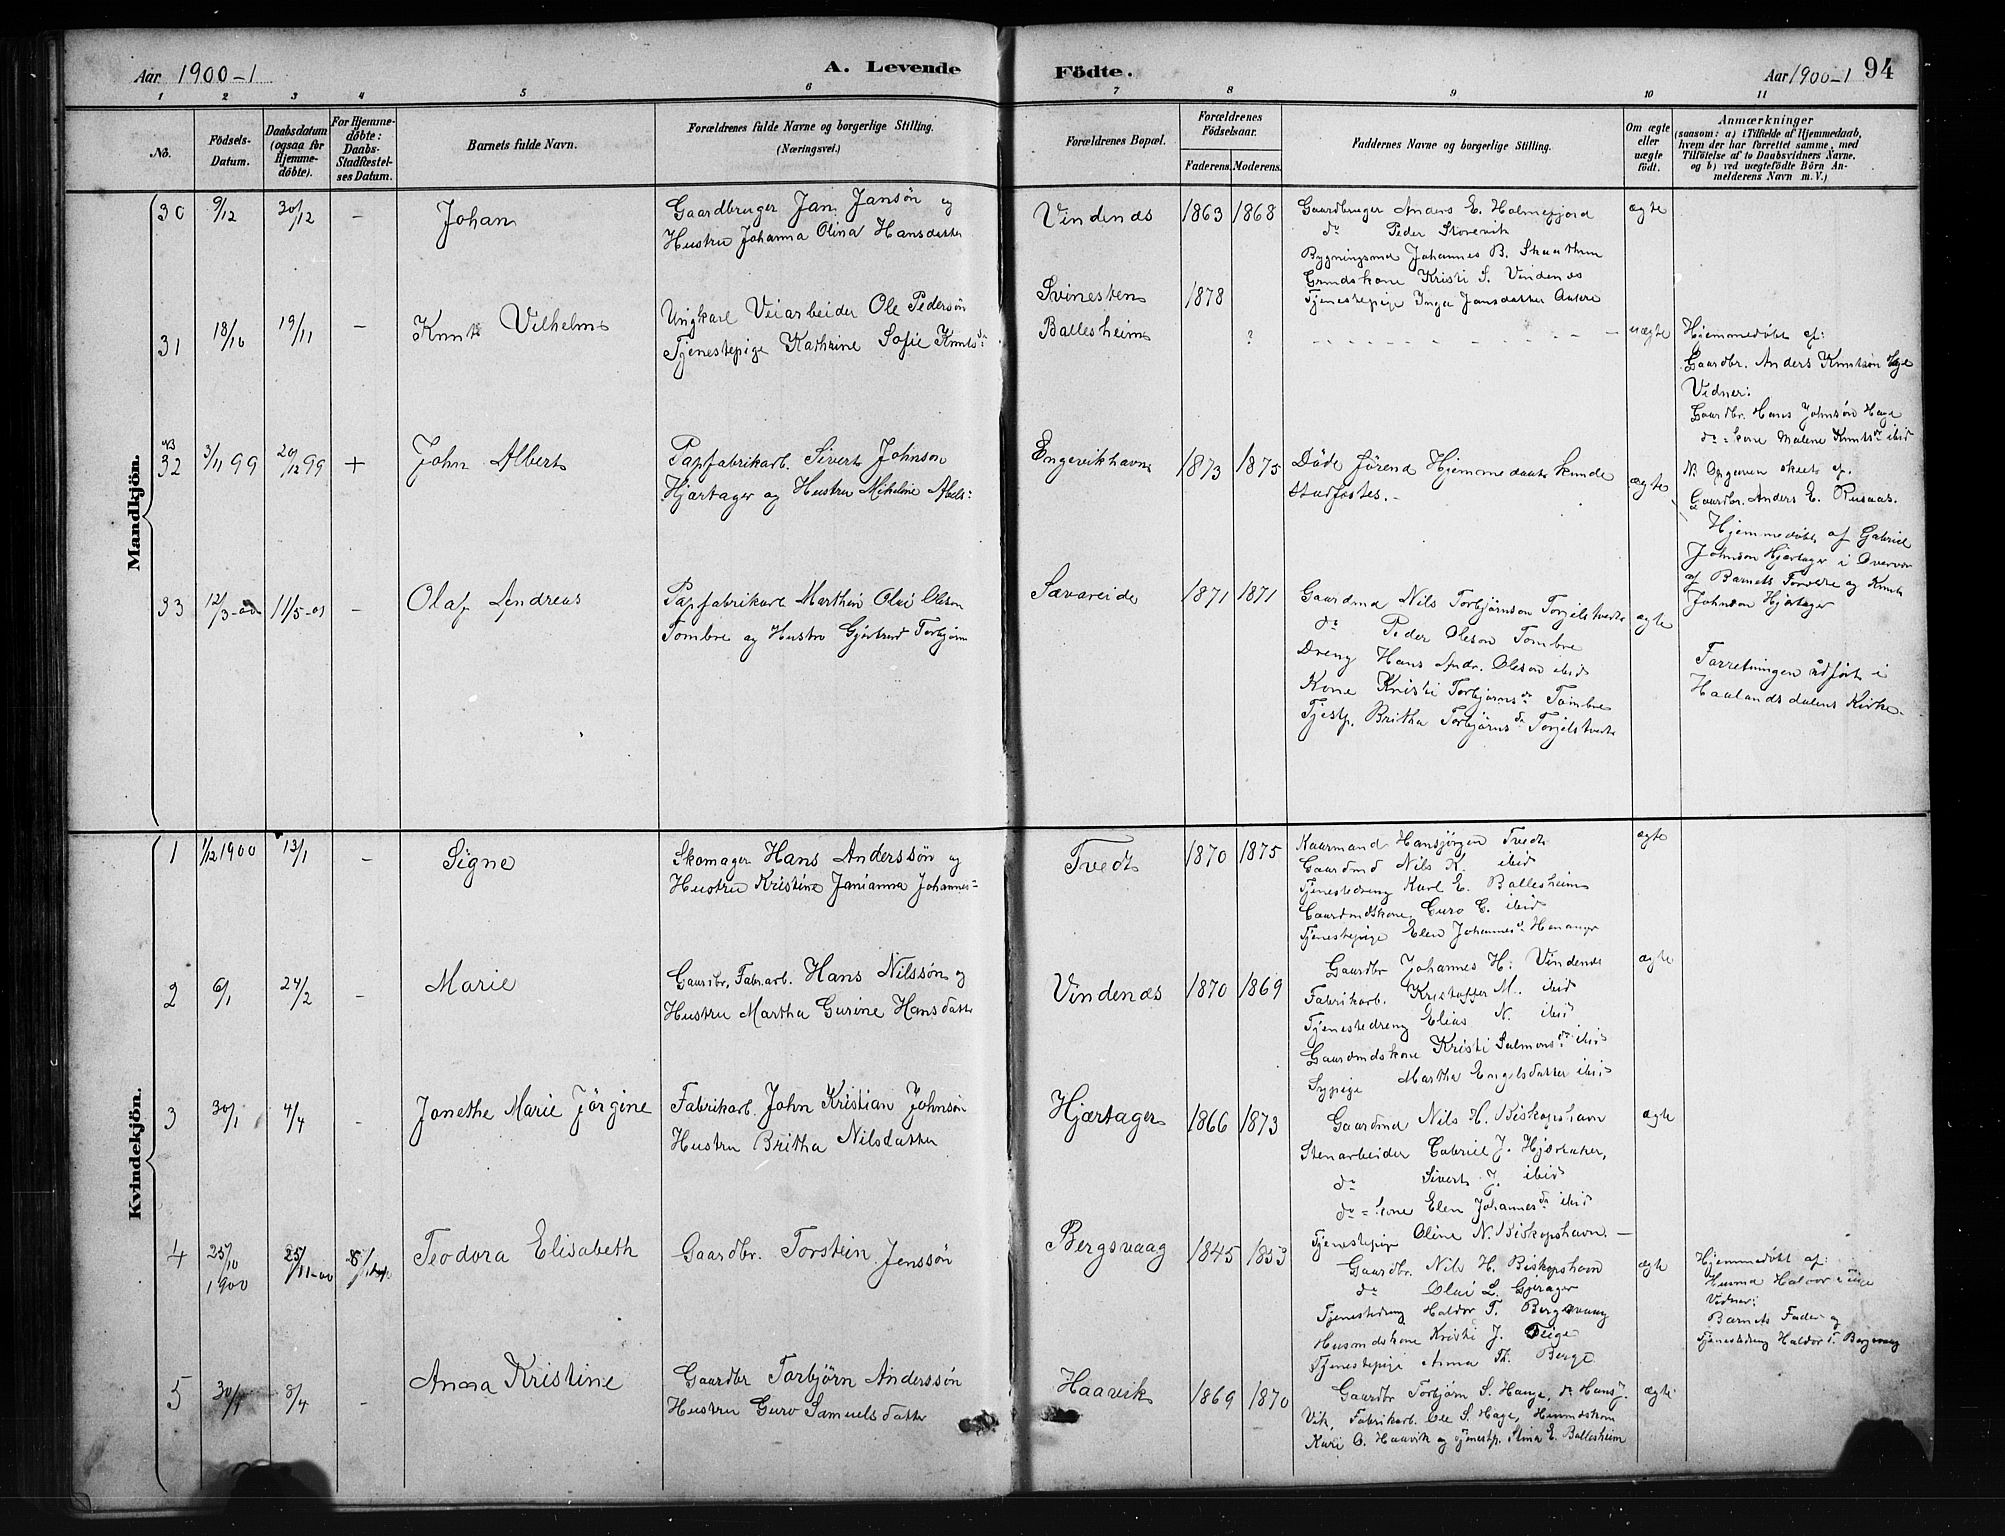 Aar 1900-1
A. Levende
Födte.
Aar 1900-1
94
1 2 3 4 5 6 7 8 9 10 11
No.
Födsels-
Datum.
Daabsdatum
(ogsaa for
Hjemme-
döbte).
For Hjemme-
döbte:
Daabs-
Stadfæstel-
ses Datum.
Barnets fulde Navn.
Forældrenes fulde Navne og borgerlige Stilling.
(Næringsvei.)
Forældrenes Bopæl.
Forældrenes
Födselsaar.
Faderens. Moderens.
Faddernes Navne og borgerlige Stilling.
Om ægte
eller
uægte
födt.
Anmærkninger
(saasom: a) i Tilfælde af Hjemmedaab,
hvem der har forrettet samme, med
Tilföielse af to Daabsvidners Navne.
og b) ved uægtefödte Börn An-
melderens Navn m. V.)
Mandkjön.
30 9/12 30/12 - Johan
Gaardbruger Jan Jansön og
Hustru Johanna Olina Hansdatter
Vindenæs 1863 1868
Gaardbruger Anders E. Holmefjord
do Peder Storevik
Bygningsmd Johannes B. Skaathun
Grmdskone Kristi S. Vindenæs
Tjenestepige Inga Jansdatter
ægte
31 18/10 19/11 - Knut Vilhelm
Ungkarl Veiarbeider Ole Pedersön
Tjenestepige Kathrine Sofie Knutsdr
Svinesten 1878
Ballesheim ?
uægte
Hjemmedöbt af:
Gaardbr. Anders Knutsön Hage
Vidner:
Gaardbr. Hans Johnsön Hage
do = kone Malene Knutsdr ibid
32 3/11 99 20/12 99 + John Albert
Papfabrikarb. Sivert Johnson
Hjærtager og Hustru Mikeline Abels:
Engevikhavn 1873 1875
Döde förend Hjemmedaab kunde
stadfæstes.-
ægte
N. Opgaven skeet af.
Gaardbr. Anders E. Rusaas.
Hjemmedöbt af Gabriel
Johnson Hjærtager i Overvær
af Barnets Forældre og Knut
Johnson Hjærtager
33 12/3-00 11/5-01 - Olaf Andreas
Papfabrikarb Marthin Olai Oleson
Tombre og Hustru Gjertrud Torbjörn
Sævareide 1871 1871
Gaardmd Nils Torbjörnson Torjelstvedt
do Peder Oleson Tombre
Dreng Hans Andr. Oleson ibid
Kone Kristi Torbjörnsdr Tombre
Tjestp. Britha Torbjörnsdr Torjelstvedt
ægte
Forretningen udfört i
Haalandsdalens Kirke.
Kvindekjön.
1 1/12 1900 13/1 - Signe
Skomager Hans Anderssön og
Hustru Kristine Janianna Johannes=
Tvedt 1870 1875
Kaarmand Hansjörgen Tvedt
Gaardmd Nils K. ibid
Tjenestedreng Karl E. Ballesheim
Gaardmdskone Guro C. ibid
Tjenestepige Elen Johannesdr Henanger
ægte
2 6/1 24/2 - Marie
Gaardbr. Fabr.arb. Hans Nilssön og
Hustru Martha Gurine Hansdatter
Vindenæs 1870 1869
Gaardbr Johannes H. Vindenæs
Fabrikarb. Kristoffer M. ibid
Tjenestedreng Elias N. ibid
Gaardmdskone Kristi Salmonsdr ibid
Sypige Martha Engelsdatter ibid
ægte
3 30/1 4/4 - Jonethe Marie Jörgine
Fabrikarb. John Kristian Johnsön
Hustru Britha Nilsdatter
Hjærtager 1866 1873
Gaardmd Nils H. Biskopshavn
Stenarbeider Gabriel J. Hjærtaker,
do Sivert J. ibid
do = kone Elen Johannesdr ibid
Tjenestepige Oline N. Biskopshavn.
ægte
4 25/10 1900 25/11-00 Teodora Elisabeth
Gaardbr. Torstein Jenssön
Bergsvaag 1845 1853
Gaardbr. Nils H. Biskopshavn
do Olai L. Gjerager
Tjenestedreng Haldor T. Bergsvaag
Husmdskone Kristi J. Teige
Tjenestepige Anna Th. Berge
ægte
Hjemmedöbt af:
Husmd Haldor Teige
Vidner:
Barnets Fader og
Tjenestedreng Haldor T. Bergsvaag
5 30/1 8/4 - Anna Kristine
Gaardbr Torbjörn Anderssön
Hustru Guro Samuelsdatter
Haavik 1869 1870
Gaardbr Torbjörn S. Hauge, do Hans J.
Vik, Fabrikarb. Ole S. Hage, Husmdskone
Kari O. Haavik og tjenestp. Stina E. Ballesheim
ægte